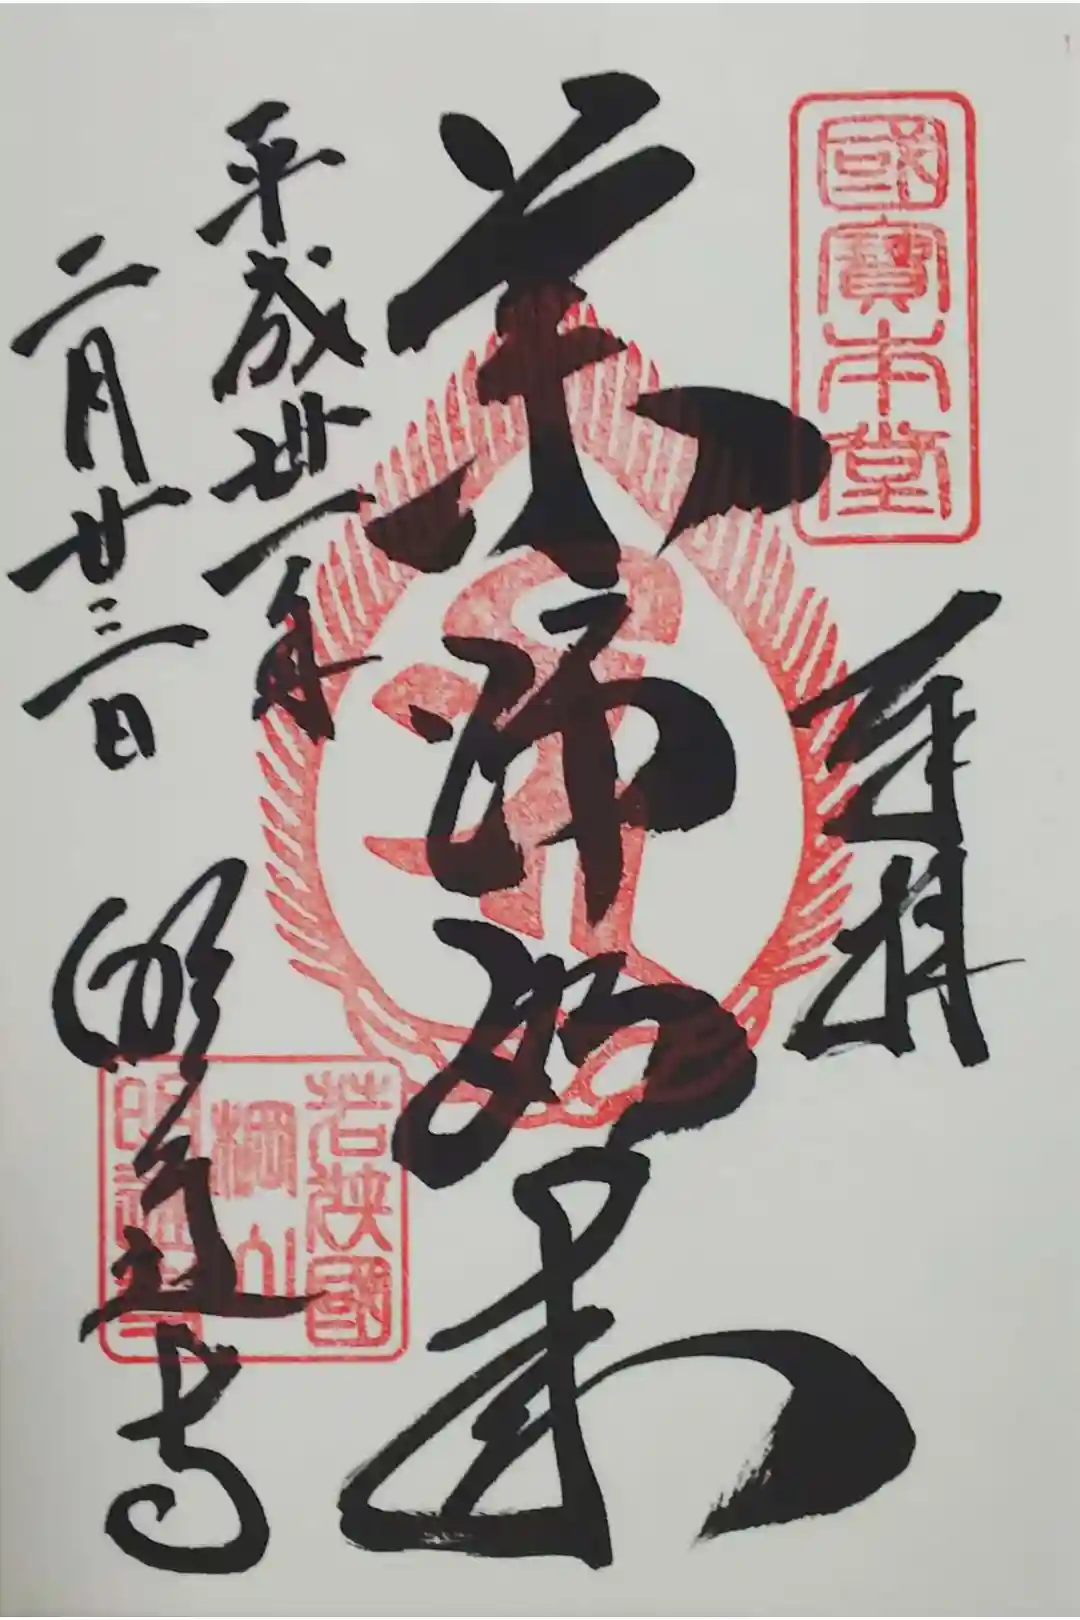 國寳本堂
奉拝
薬師如来
平成卅一年
二月廿三日
明通寺
若狭國
棡山
明通寺